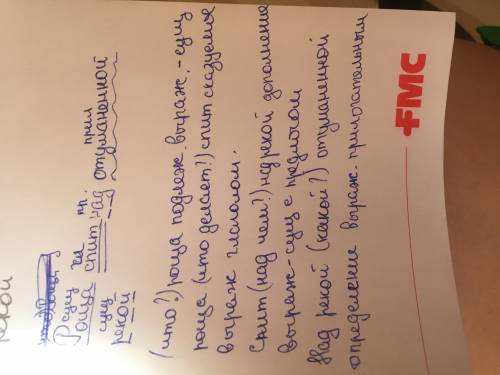 рекой
сущ гл пп. прил
Роща спит над отуманенной
сущ
рекой
(что?) роща подлеж. выраж. - сущ
роща (что делает?) спит сказуемое
выраж глаголом.
Спит (над чем?) над рекой дополнение
выраж - сущ с предлогом
Над рекой (какой?) отуманенной
определение выраж. прилогательным
FMC